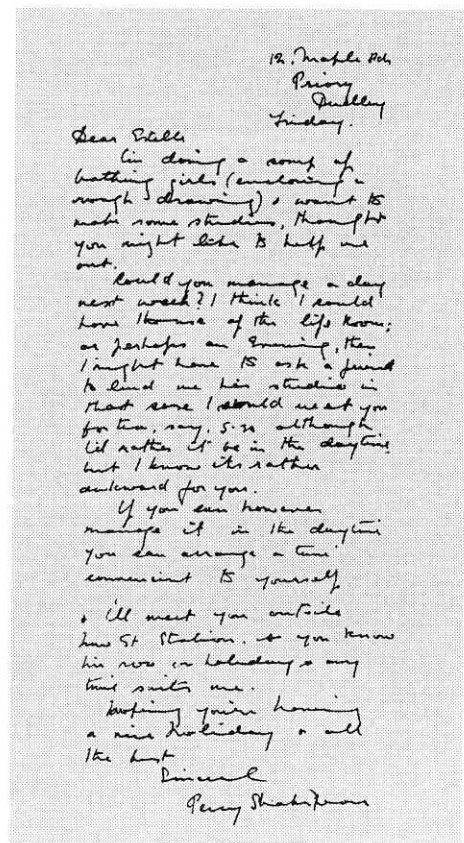 12. Maple Rd
Priory
Dudley
Friday.
Dear Estelle
I'm doing a comp of
bathing girls (enclosing a
rough drawing) & want to
make some studies, thought
you might like to help me
out.
Could you manage a day
next week? I think I could
have the use of the life room;
or perhaps an evening, then
I might have to ask a friend
to lend me his studio in
that case I would meet you
for tea, say, 5.30 although
I'd rather it be in the daytime
but I know its rather
awkward for you.
If you can however
manage it in the daytime
you can arrange a time
convenient to yourself
& I'll meet you outside
New St Station. As you know
I'm now on holiday & any
time suits me.
Hoping you're having
a nice holiday & all
the best
Sincerely
Percy Shakespeare